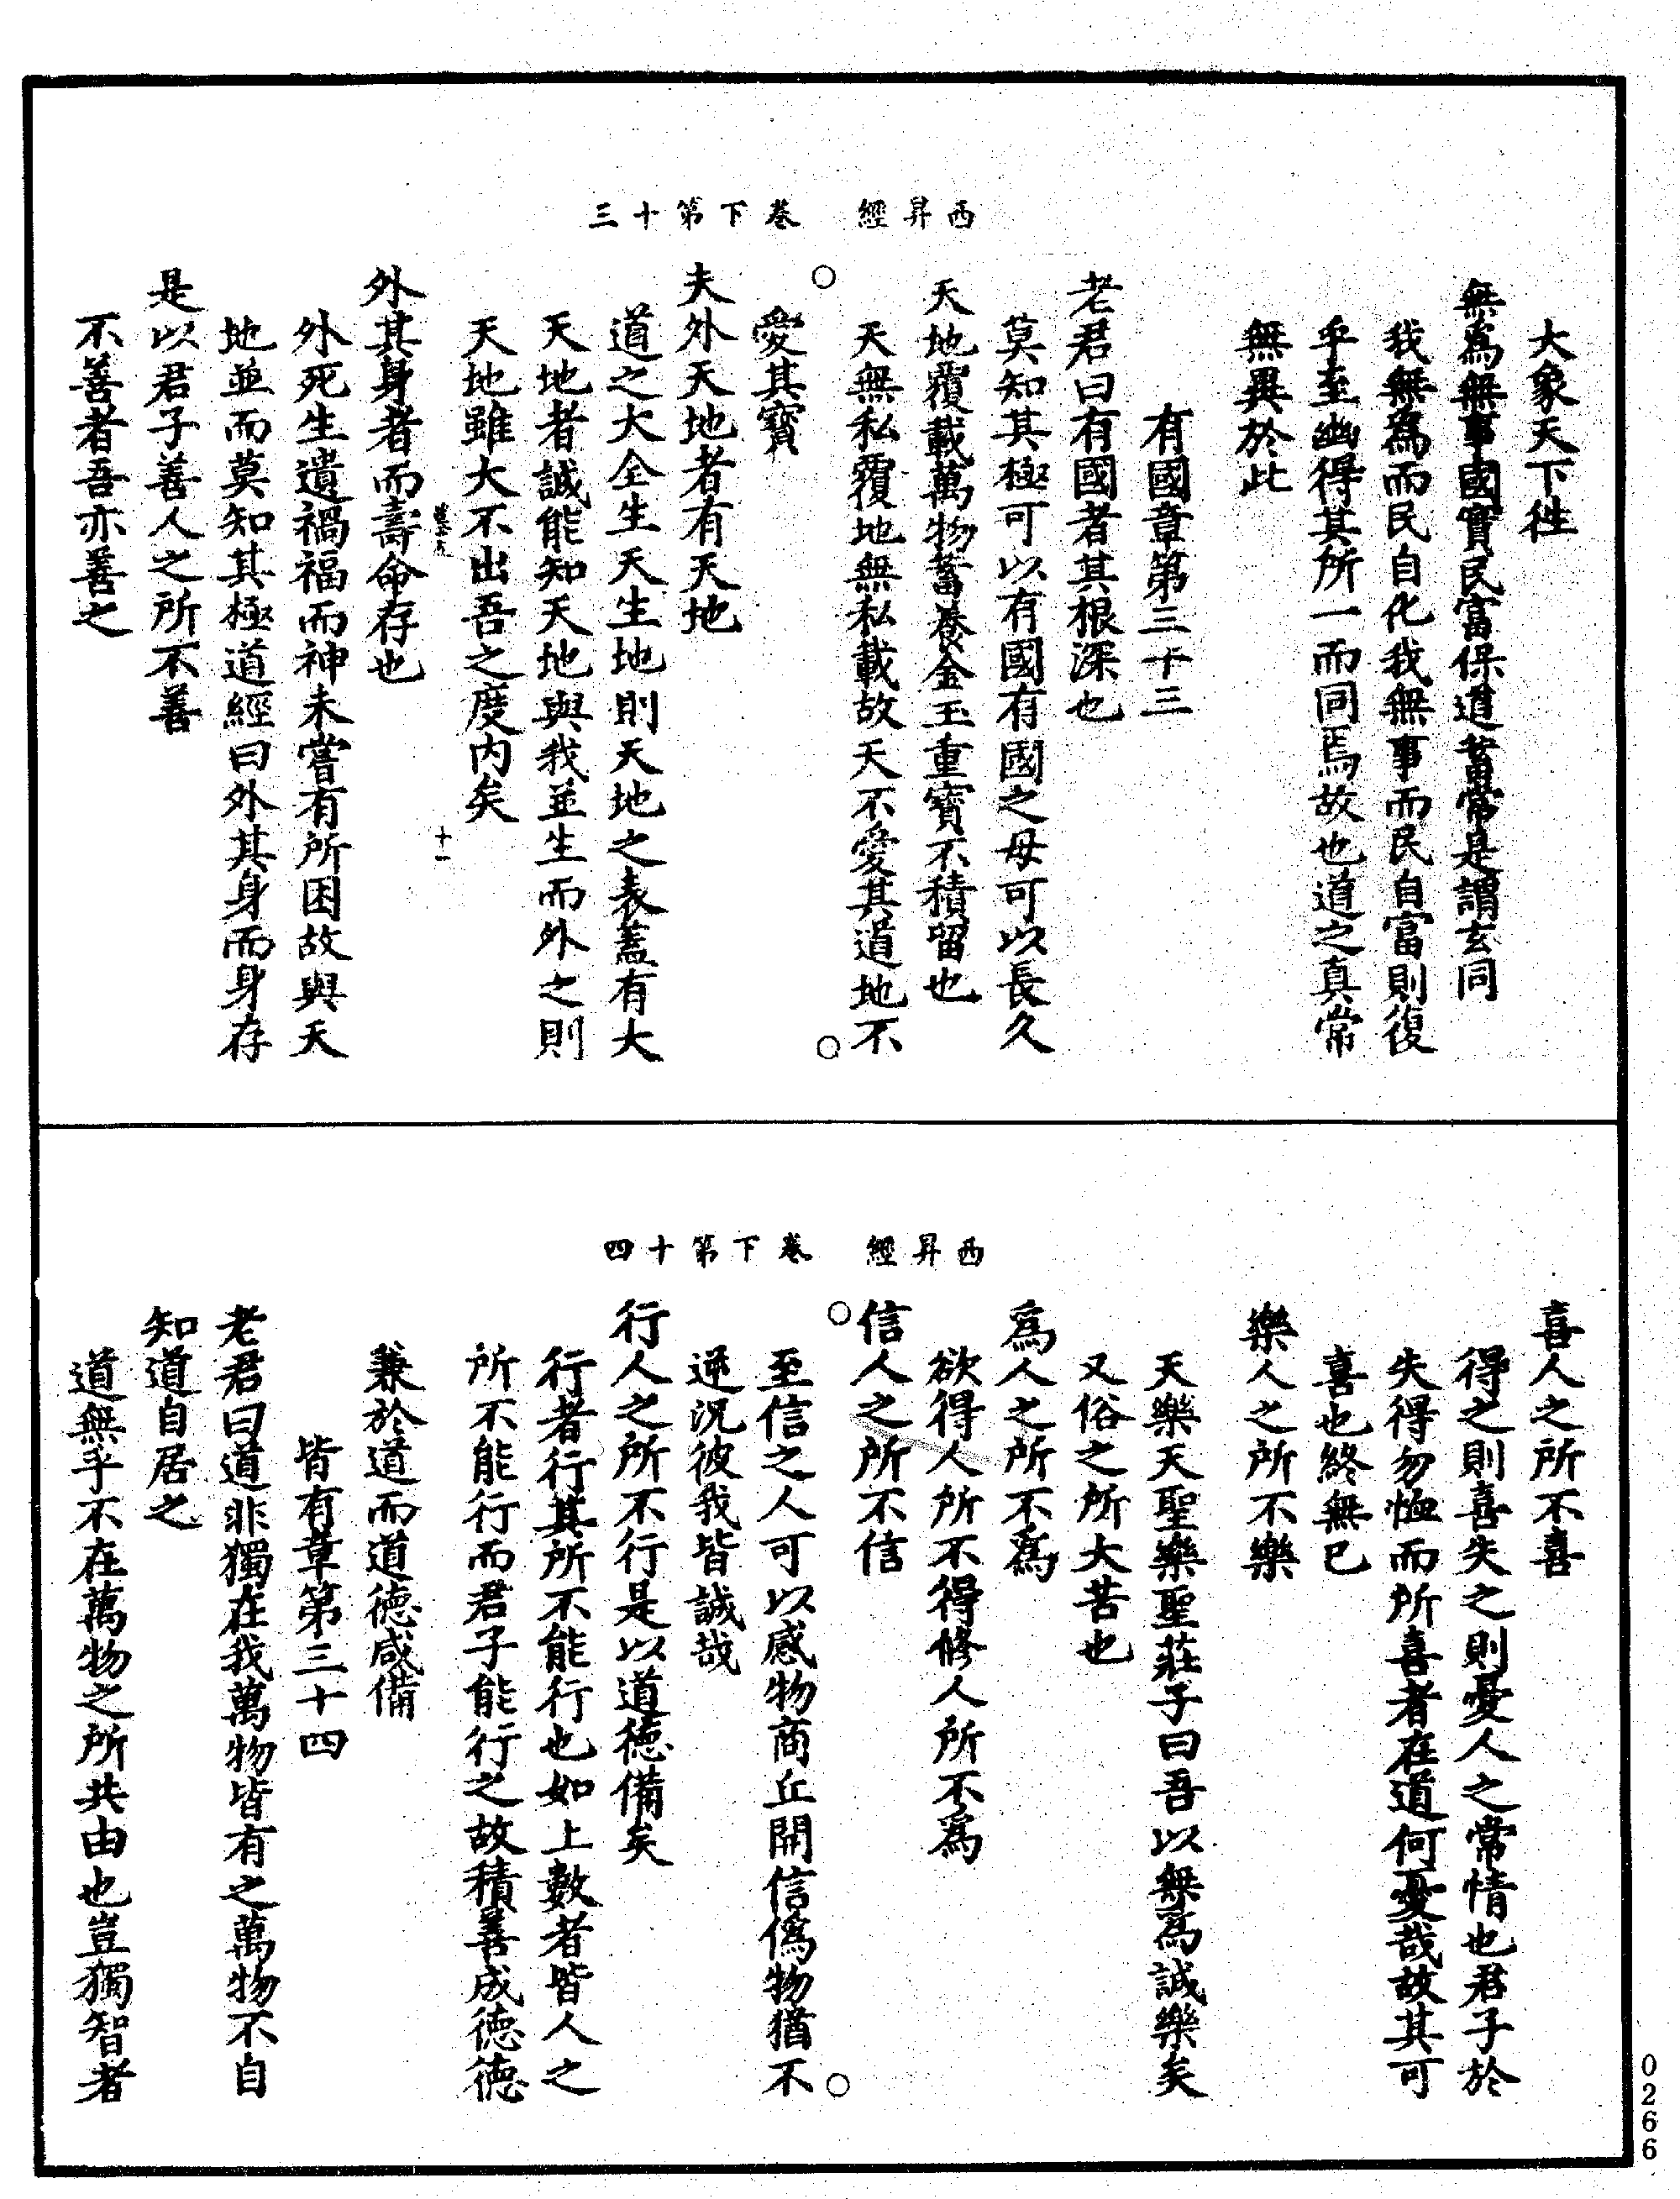 西昇經　卷下第十三
大象天下徃
無爲無事國實民富保道畜常是謂玄同
我無爲而民自化我無事而民自富則復
乎至幽得其所一而同焉故也道之真常
無異於此
有國章第三十三
老君曰有國者其根深也
莫知其極可以有國有國之母可以長久
天地覆載萬物蓄養金玉重寶不積留也
天無私覆地無私載故天不愛其道地不
愛其寶
夫外天地者有天地
道之大全生天生地則天地之表蓋有大
天地者誠能知天地與我並生而外之則
天地雖大不出吾之度内矣
十一
外其身者而壽命存也
外死生遺禍福而神未嘗有所困故與天
地並而莫知其極道經曰外其身而身存
是以君子善人之所不善
不善者吾亦善之
西昇經　卷下第十四
喜人之所不喜
得之則喜失之則憂人之常情也君子於
失得勿恤而所喜者在道何憂哉故其可
喜也終無已
樂人之所不樂
天樂天聖樂聖莊子曰吾以無爲誠樂矣
又俗之所大苦也
爲人之所不爲
欲得人所不得修人所不爲
信人之所不信
至信之人可以感物商丘開信僞物猶不
逆況彼我皆誠哉
行人之所不行是以道德備矣
行者行其所不能行也如上數者皆人之
所不能行而君子能行之故積善成德德
兼於道而道德咸備
皆有章第三十四
老君曰道非獨在我萬物皆有之萬物不自
知道自居之
道無乎不在萬物之所共由也豈獨智者
0266